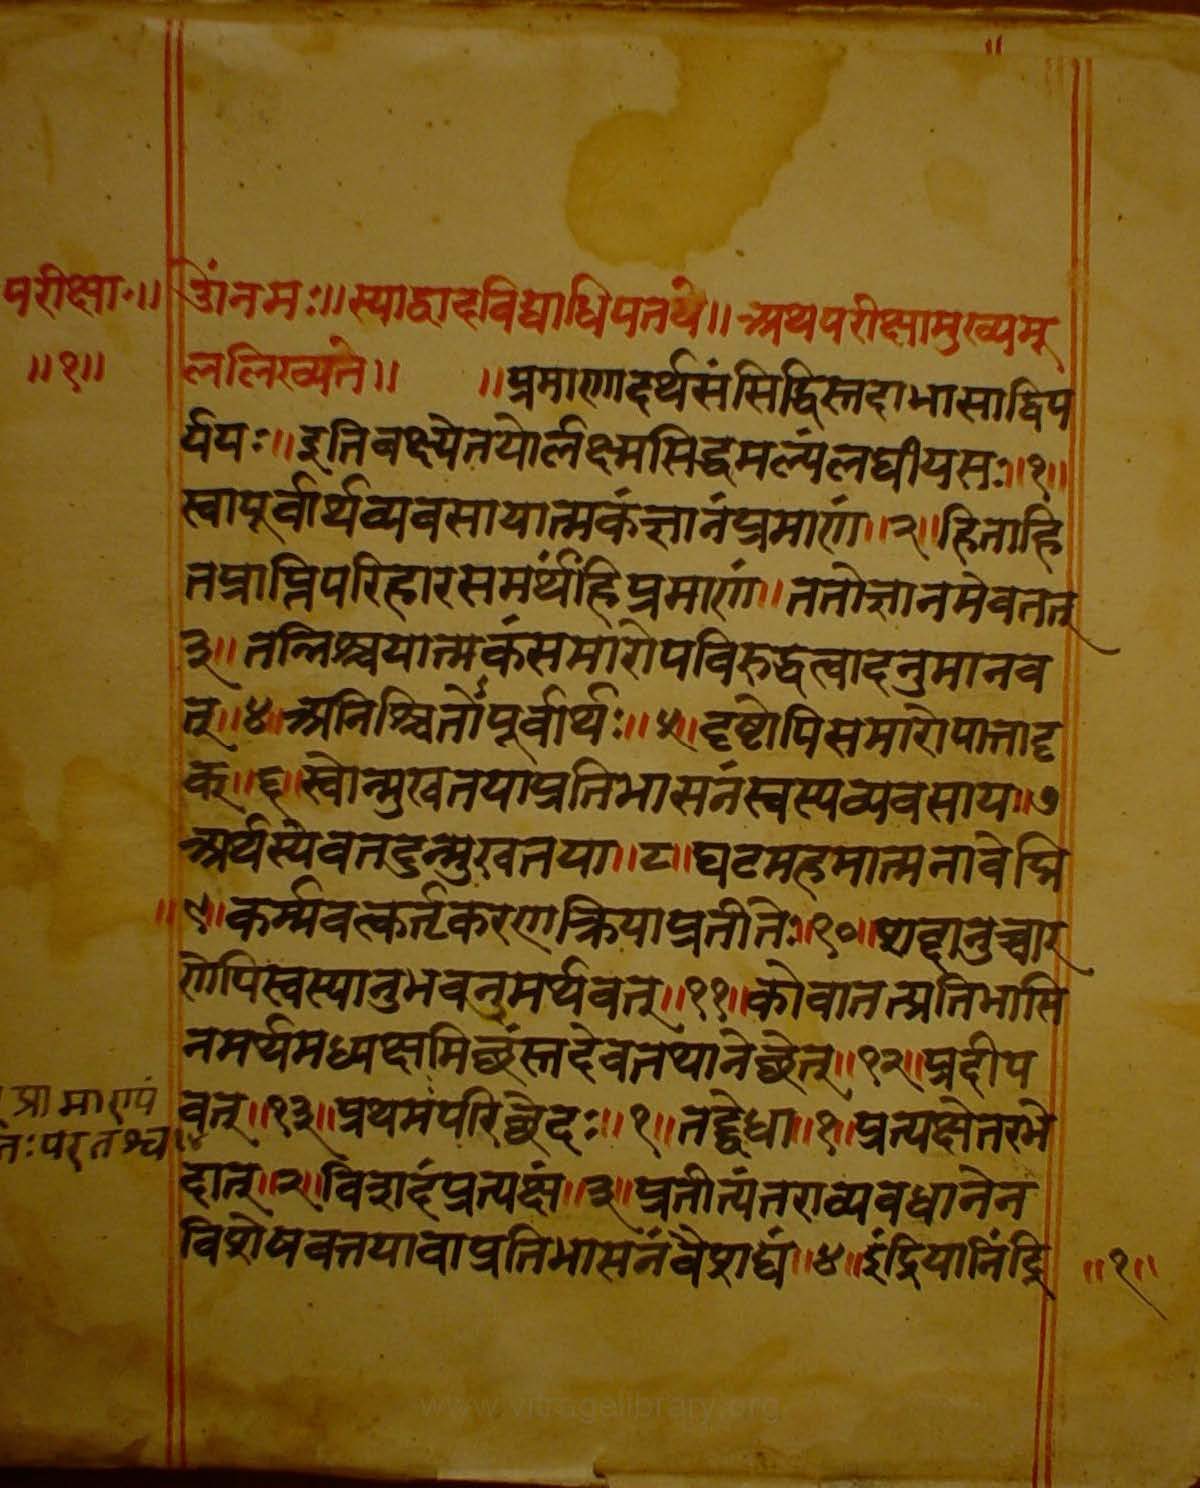 ॥
परीक्षाः॥ उोंनमः॥स्याद्वादविद्याधिपतये॥ अथपरीक्षामुख्यमू
॥१॥ ललिख्यते॥ ॥प्रमाणादर्थसंसिद्धिस्तदाभासाद्विप
र्ययः॥इतिवक्ष्येतयोर्लक्ष्मसिद्धमल्पंलघीयसः॥१॥
स्वापूर्वार्थव्यवसायात्मकंज्ञानंप्रमाणं॥२॥हिताहि
तप्राप्तिपरिहारसमर्थंहिप्रमाणं॥ततोज्ञानमेवतत्
३॥तन्निश्चयात्मकंसमारोपविरुद्धत्वादनुमानव
त्॥४॥अनिश्चितोपूर्वार्थः॥५॥दृष्टोपिसमारोपात्तादृ
क्॥६॥स्वोन्मुखतयाप्रतिभासनंस्वस्यव्यवसाय॥७
अर्थस्येवतदुन्मुखतया॥८॥घटमहमात्मनावेद्मि
॥९॥कर्म्मवत्कर्तृकरणक्रियाप्रतीतेः॥१०॥शब्दानुच्चार
णेपिस्वस्यानुभवनमर्थवत्॥११॥कोवातत्प्रतिभासि
नमर्थमध्यक्षमिच्छंस्तदेवतथानेच्छेत्॥१२॥प्रदीप
वत्॥१३॥प्रथमंपरिच्छेदः॥१॥तद्द्वेधा॥१॥प्रत्यक्षेतरभे
प्रामाण्यं
तःपरतश्च॥
दात्॥२॥विशदंप्रत्यक्षं॥३॥प्रतीत्यंतराव्यवधानेन
विशेषवत्तयावाप्रतिभासनंवैशद्यं॥४॥इंद्रियानिंद्रि ॥१॥
www.vitragelibrary.org